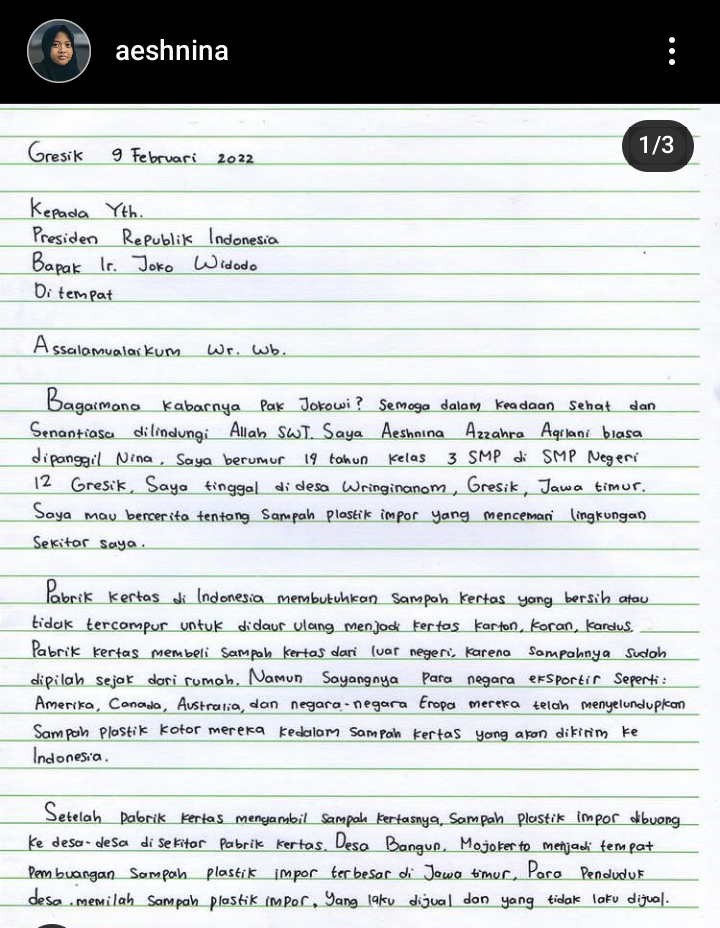 aeshnina
1/3
Gresik 9 Februari 2022
Kepada Yth.
Presiden Republik Indonesia
Bapak Ir. Joko Widodo
Di tempat
Assalamualaikum Wr. Wb.
Bagaimana kabarnya Pak Jokowi? Semoga dalam keadaan sehat dan
Senantiasa dilindungi Allah SWT. Saya Aeshnina Azzahra Aqilani biasa
dipanggil Nina. Saya berumur 14 tahun kelas 3 SMP di SMP Negeri
12 Gresik. Saya tinggal di desa Wringinanom, Gresik, Jawa timur.
Saya mau bercerita tentang Sampah plastik impor yang mencemari lingkungan
Sekitar saya.
Pabrik kertas di Indonesia membutuhkan sampah kertas yang bersih atau
tidak tercampur untuk didaur ulang menjadi kertas karton, koran, kardus.
Pabrik kertas membeli sampah kertas dari luar negeri, karena sampahnya sudah
dipilah sejak dari rumah. Namun Sayangnya Para negara eksportir seperti:
Amerika, Canada, Australia, dan negara-negara Eropa mereka telah menyelundupkan
Sampah plastik kotor mereka kedalam sampah kertas yang akan dikirim ke
Indonesia.
Setelah pabrik kertas mengambil sampah kertasnya, Sampah plastik impor dibuang
ke desa-desa di sekitar pabrik kertas. Desa Bangun, Mojokerto menjadi tempat
Pembuangan Sampah plastik impor terbesar di Jawa timur, Para Penduduk
desa memilah sampah plastik impor, Yang laku dijual dan yang tidak laku dijual.